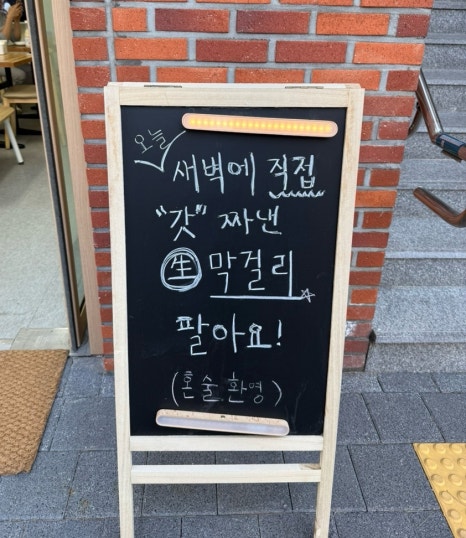 오늘
새벽에 직접
"갓" 짜낸
生 막걸리
팔아요!
(혼술 환영)